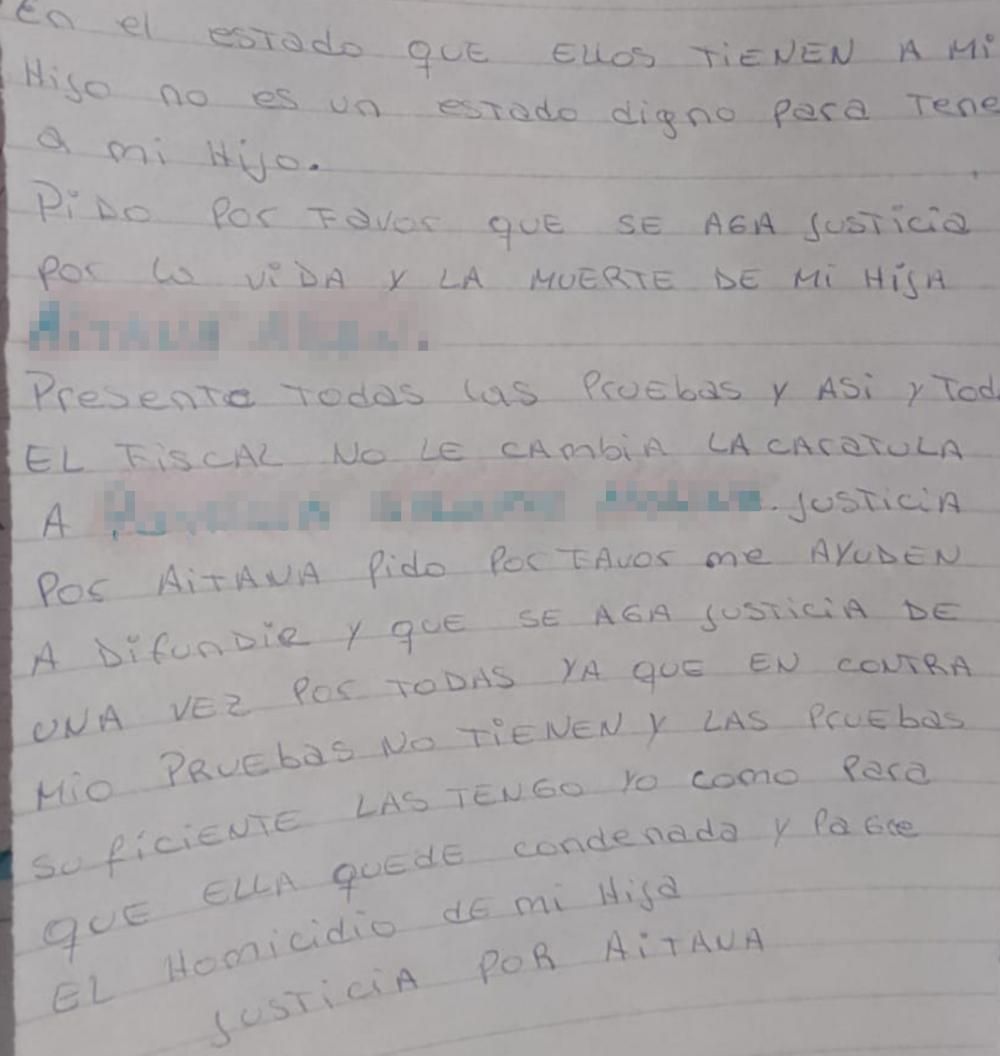 En el estado QUE EllOS TiENEN A Mi
Hijo no es un estado digno para Tene
a mi Hijo.
PiDo Por Favor QUE SE AGA JUSTicia
Por la ViDA Y LA MUERTE DE Mi HijA
Presente Todas las PruEbas Y ASi Y Tod
EL FiSCAL NO LE CAmbiA LA CARATULA
A JUSTiciA
Por AiTANA Pido Por FAvor me AYUDEN
A DifunDir Y QUE SE AGA JUSTICIA DE
UNA VEZ Por TODAS YA QUE EN CONTRA
Mio PRUEbas NO TiENEN Y LAS PruEbas
SuficiENTE LAS TENGO Yo como Para
QUE ELLA QUEDE condenada Y PaGue
EL Homicidio de mi Hija
JUSTiciA POR AiTANA